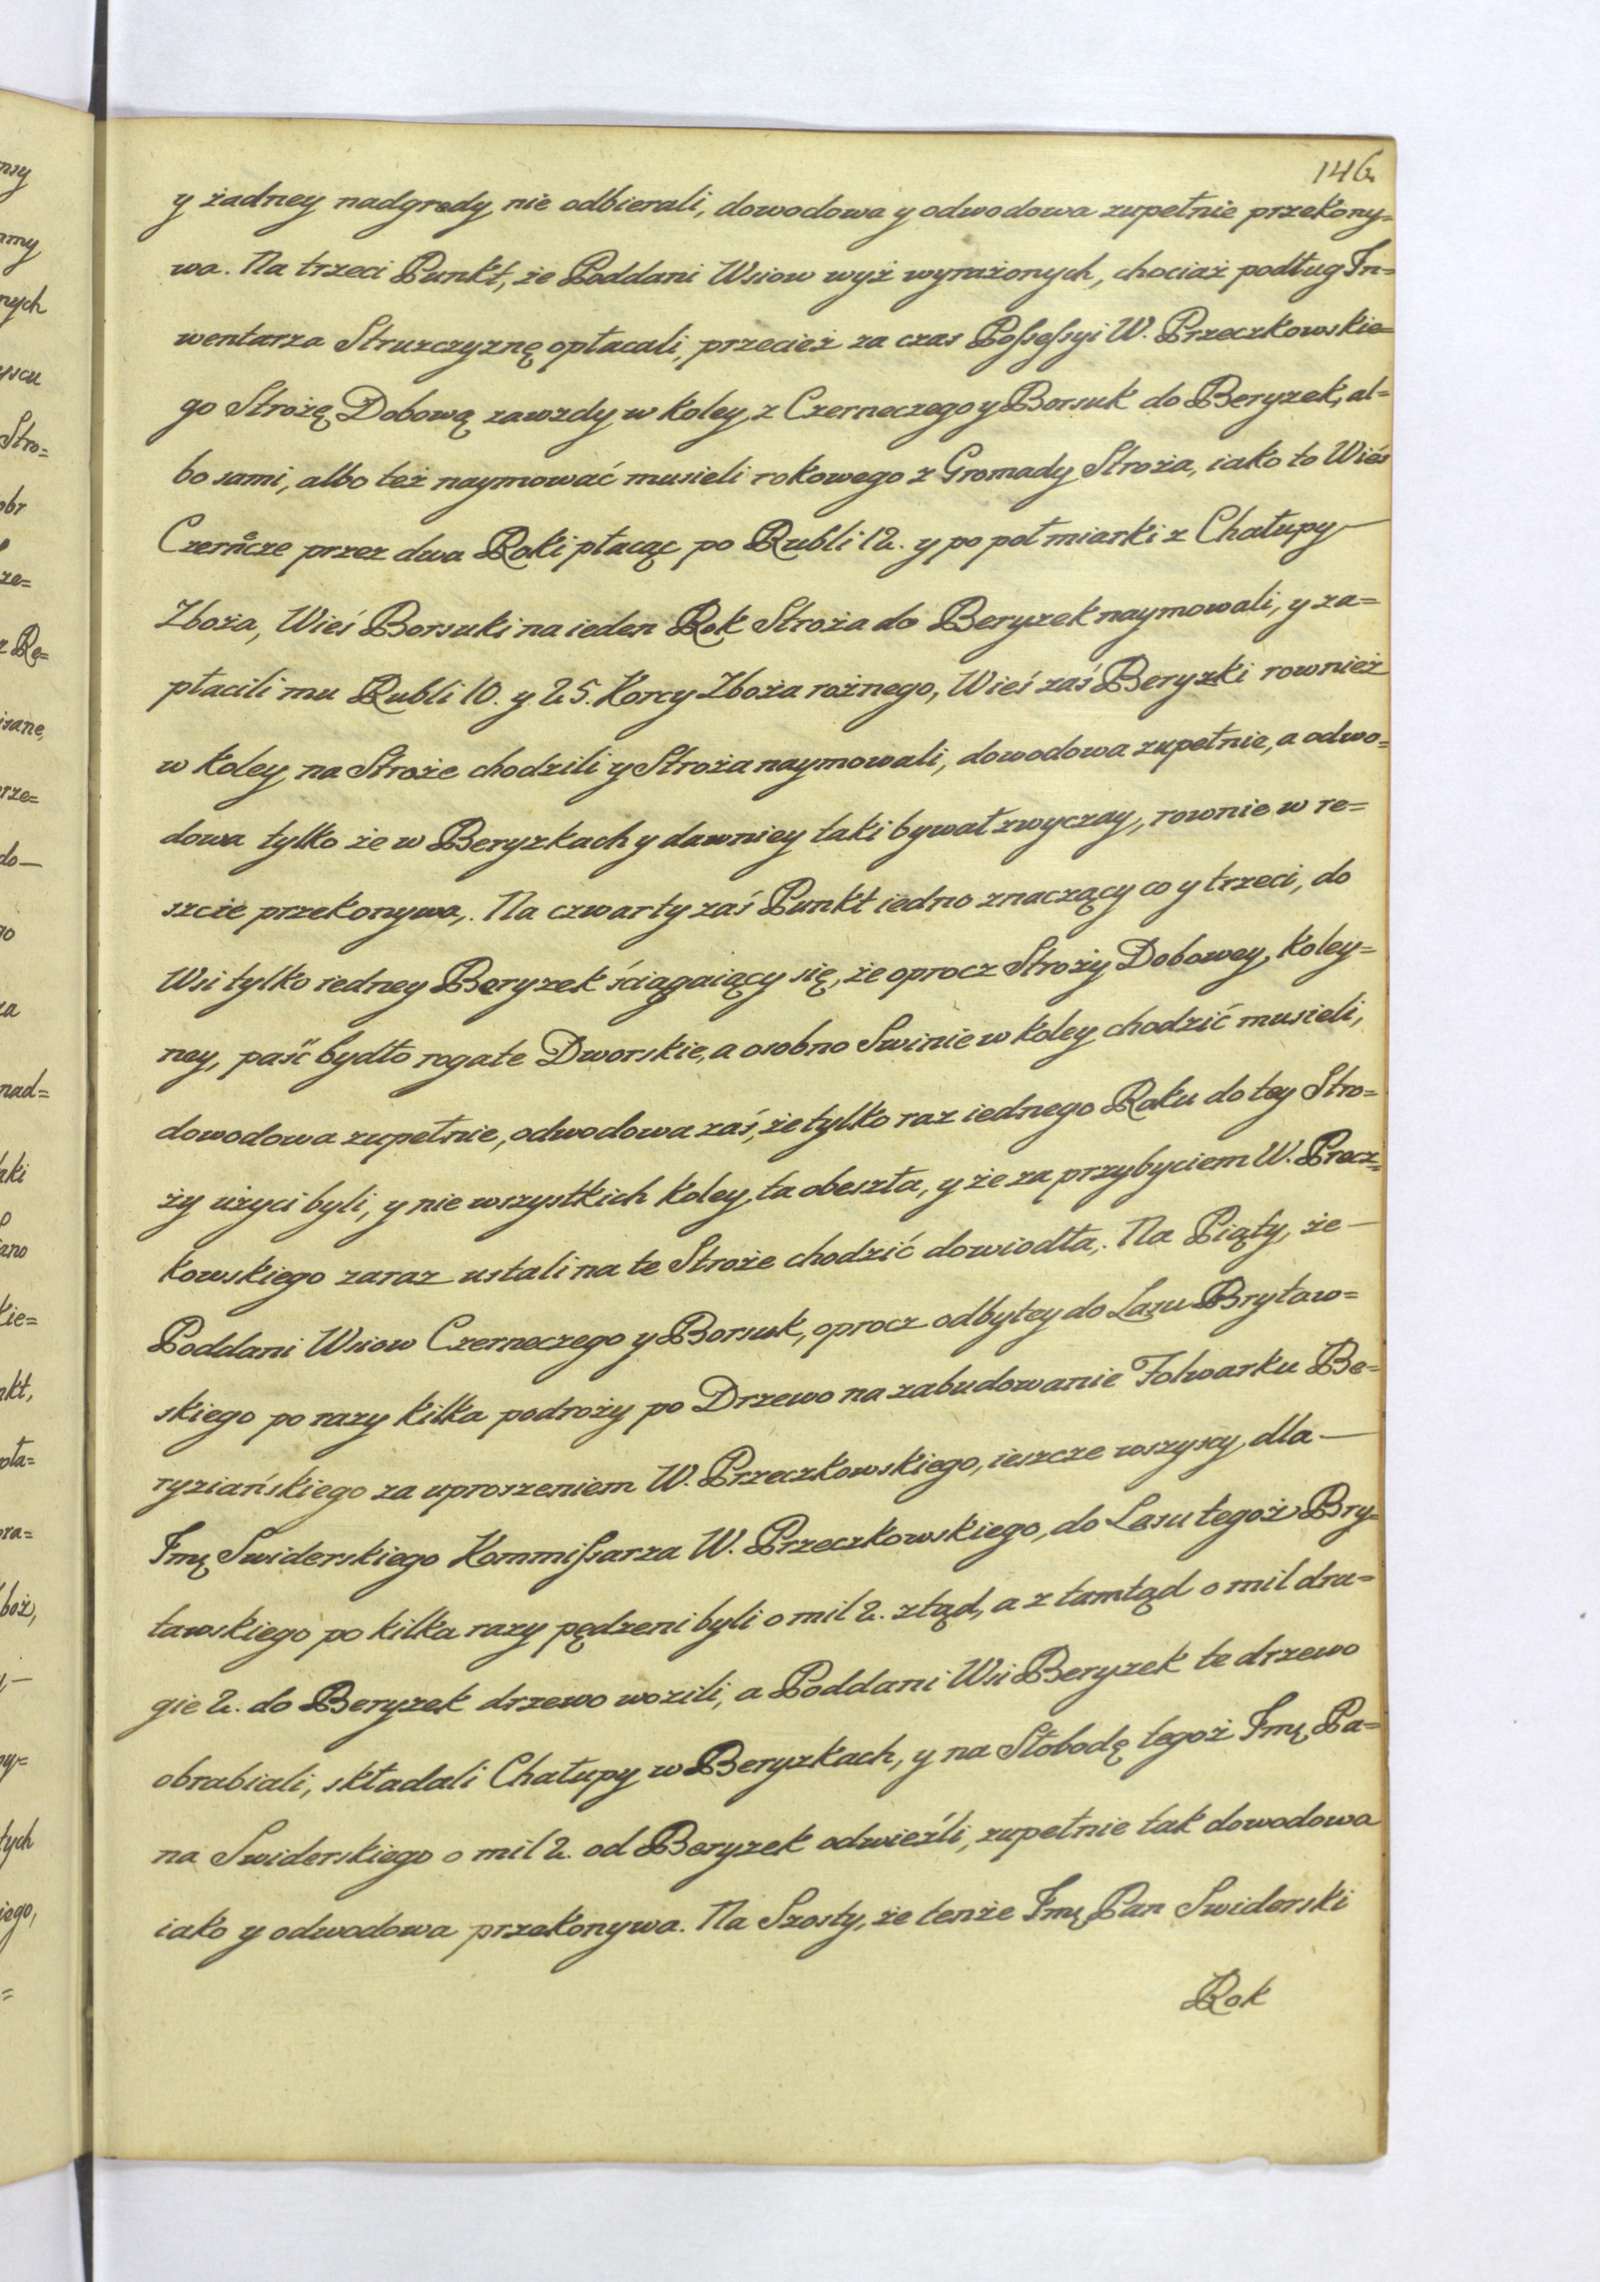 146.
y żadney nadgrody nie odbierali, dowodowa y odwodowa zupełnie przekony=
wa. Na trzeci Punkt, że Poddani Wsiow wyż wyrażonych, chociaż podług In=
wentarza Struzczyznę opłacali, przecież za czas Possessyi W. Przeczkowskie=
go Strożę Dobową zawzdy w koley z Czerneczego y Borsuk do Beryzek, al=
bo sami, albo też naymować musieli rokowego z Gromady Stroża, iako to Wieś
Czerncze przez dwa Roki płacąc po Rubli 12. y po pół miarki z Chałupy —
Zboża, Wieś Borsuki na ieden Rok Stroża do Beryzek naymowali, y za=
płacili mu Rubli 10. y 25. Korcy Zboża rożnego, Wieś zaś Beryzki rownież
w koley na Stroże chodzili y Stroża naymowali, dowodowa zupełnie, a odwo=
dowa tylko że w Beryzkach y dawniey taki bywał zwyczay, rownie w re=
szcie przekonywa,. Na czwarty zaś Punkt iedno znaczący co y trzeci, do
Wsi tylko iedney Beryzek ściągaiący się, że oprocz Stroży Dobowey, koley=
ney, paść bydło rogate Dworskie, a osobno Swinie w koley chodzić musieli,
dowodowa zupełnie, odwodowa zaś, że tylko raz iednego Roku do tey Stro=
ży użyci byli, y nie wszystkich koley ta obeszła, y że za przybyciem W. Przecz=
kowskiego zaraz ustali na te Stroże chodzić dowiodła,. Na Piąty, że —
Poddani Wsiow Czerneczego y Borsuk, oprocz odbytey do Lasu Brytaw=
skiego po razy kilka podroży po Drzewo na zabudowanie Folwarku Be=
ryziańskiego za uproszeniem W. Przeczkowskiego, ieszcze wszyscy dla —
Jmę Swiderskiego Kommissarza W. Przeczkowskiego, do Lasu tegoż Bry=
tawskiego po kilka razy pędzeni byli o mil 2. ztąd, a z tamtąd o mil dru=
gie 2. do Beryzek drzewo wozili, a Poddani Wsi Beryzek te drzewo
obrabiali, składali Chałupy w Beryzkach, y na Słobodę tegoż Jmę Pa=
na Swiderskiego o mil 2. od Beryzek odwieźli, zupełnie tak dowodowa
iako y odwodowa przekonywa. Na Szosty, że tenże Jmę Pan Swiderski
Rok